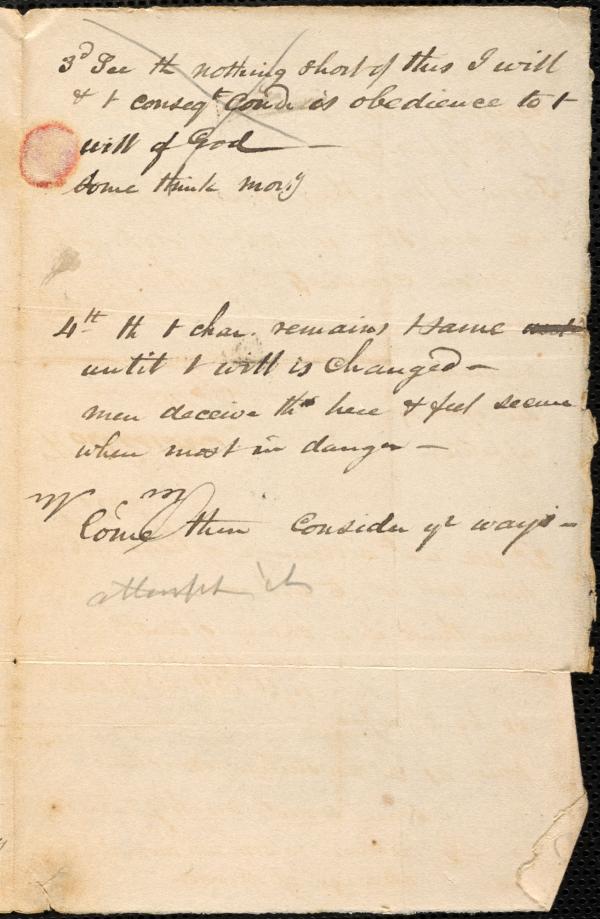 3d See th nothing short of this I will
& t conseqt Condr is obedience to t
will of God —
Some think mory
4th th t char. remains t same
until t will is changed —
men deceive thm here & feel secure
when most in danger —
Come then Consider yr ways —
attempt it